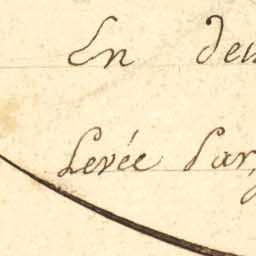 En deu
Levée Par